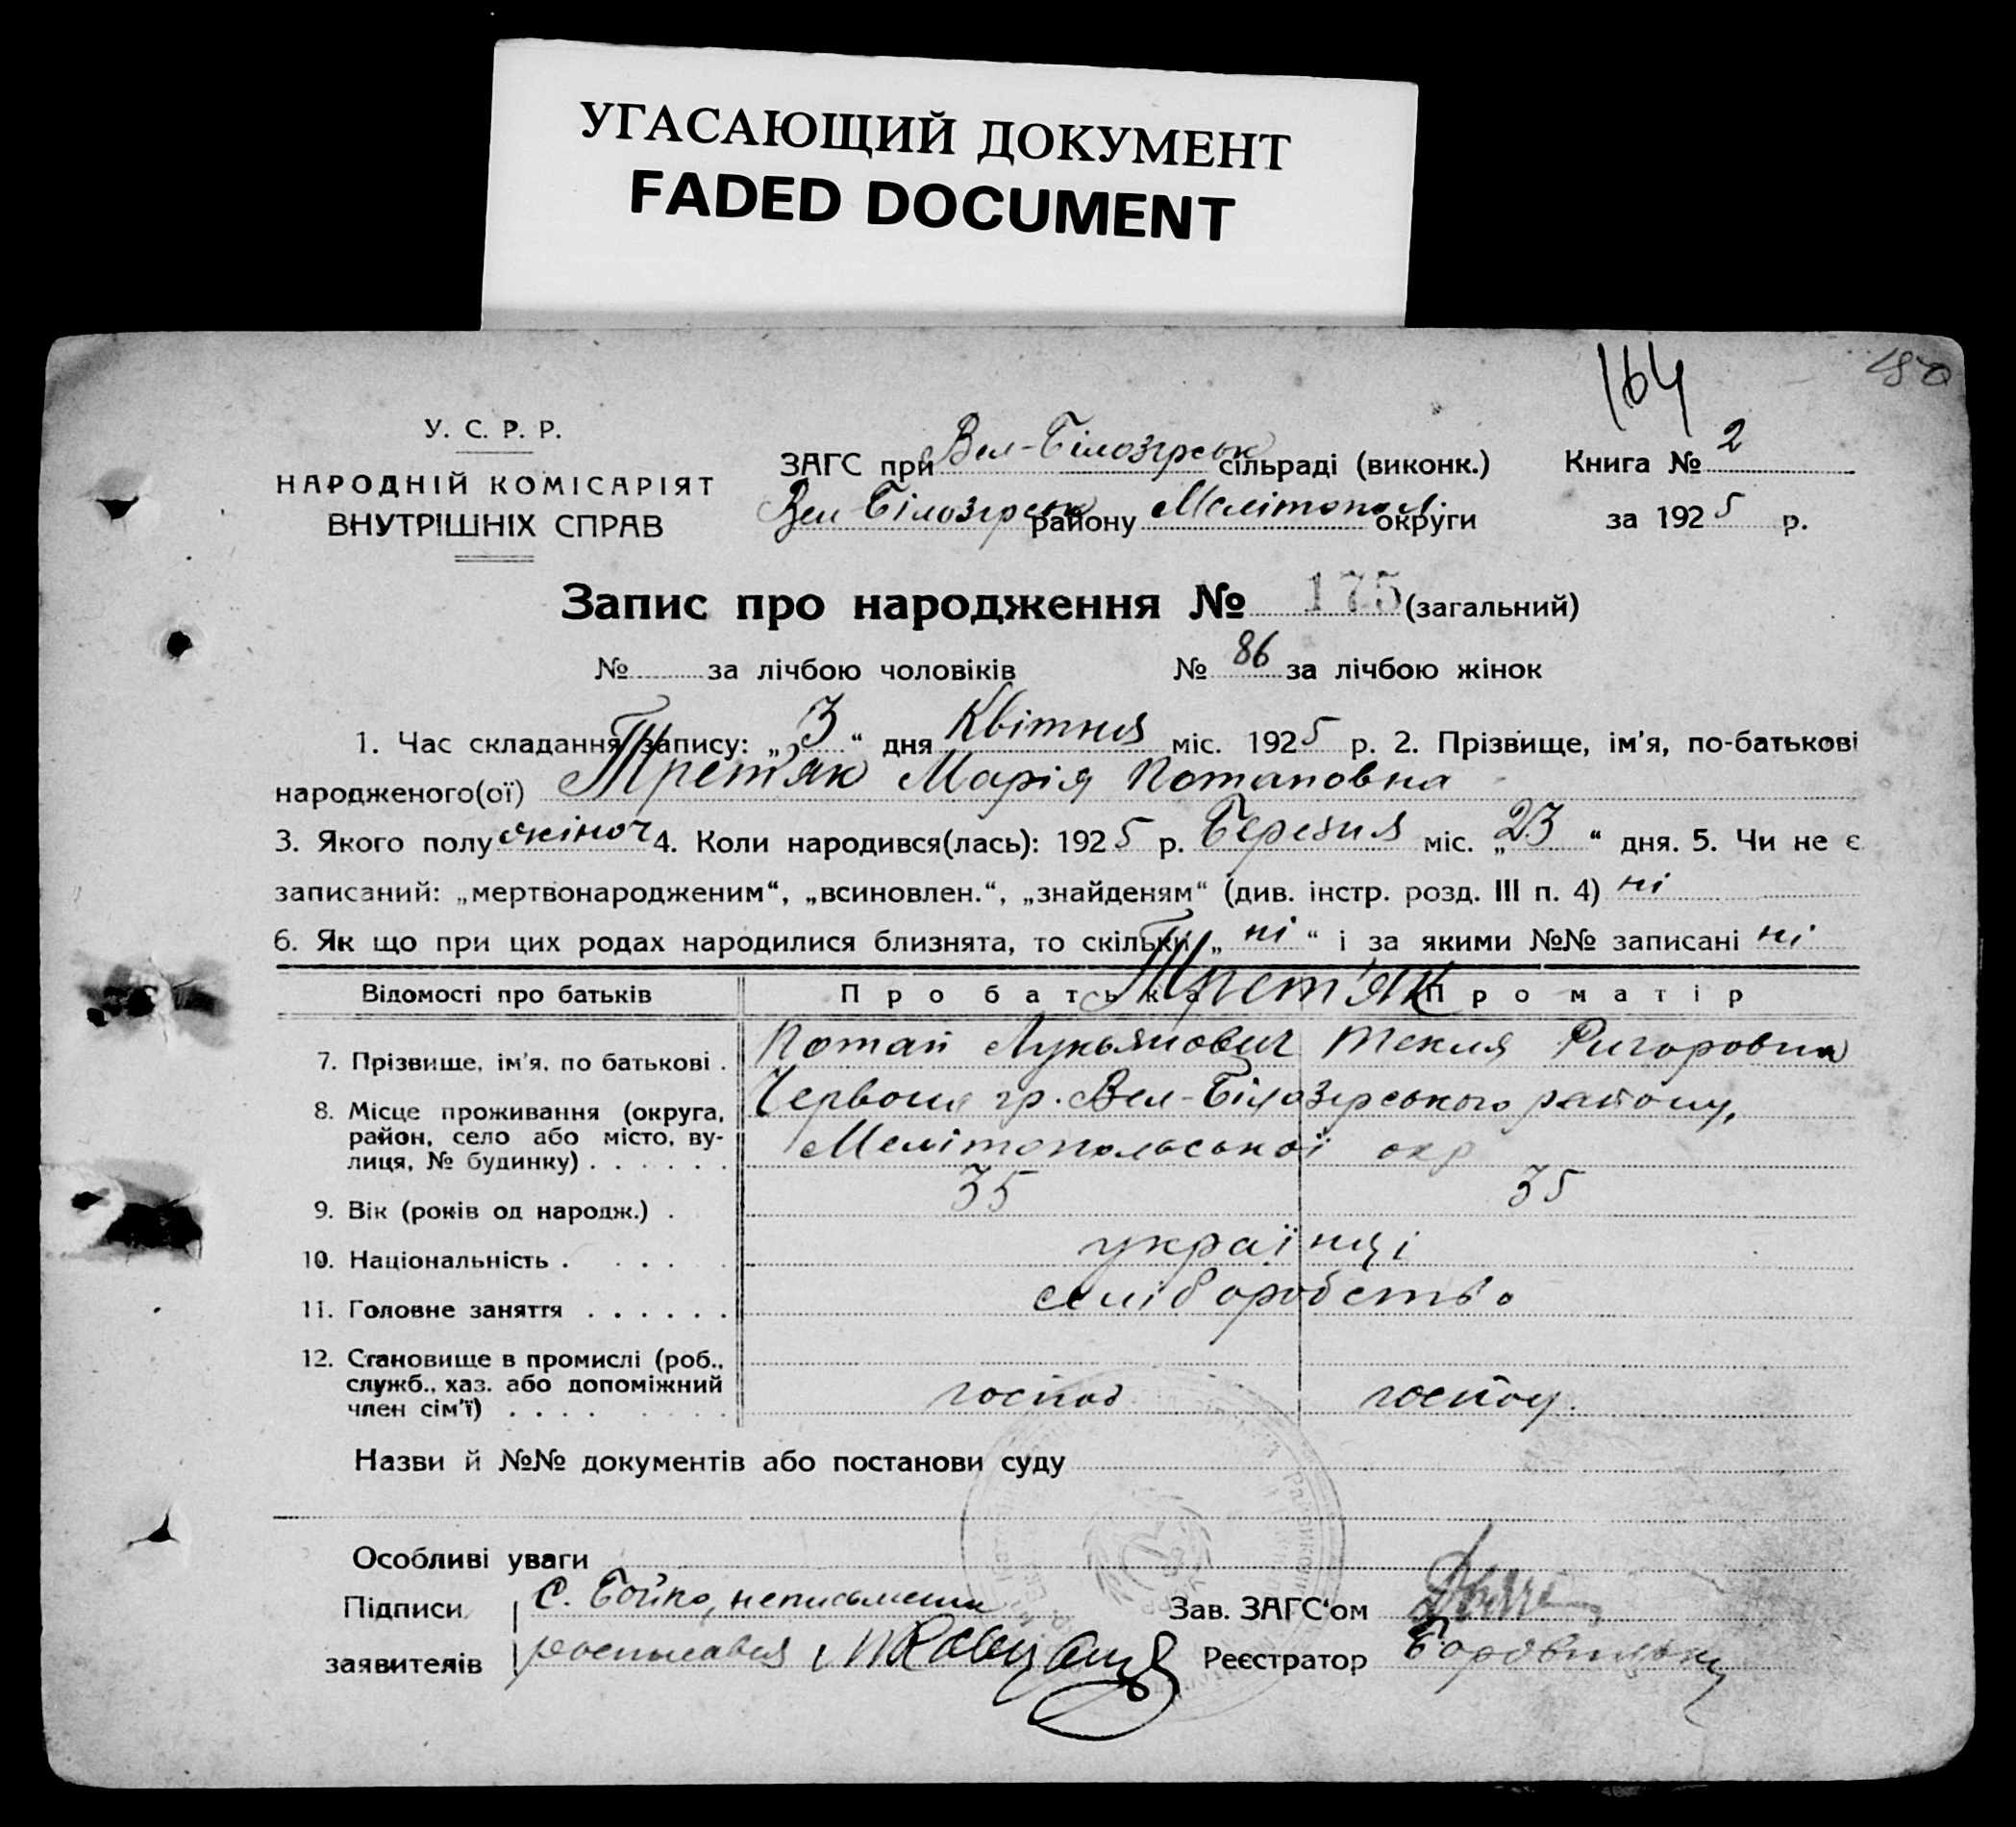 УГАСАЮЩИЙ ДОКУМЕНТ
FADED DOCUMENT
164
180
У. С. Р. Р.
НАРОДНІЙ КОМІСАРІЯТ
ВНУТРІШНІХ СПРАВ
ЗАГС при Вел-Білозерськ сільраді (виконк.)
Вел Білозерськ району Мелітопол. округи
Книга № 2
за 1925 р.
Запис про народження № 175 (загальний)
№ за лічбою чоловіків № 86 за лічбою жінок
1. Час складання запису: „3“ дня Квітня міс. 1925 р. 2. Прізвище, ім'я, по-батькові
народженого(ої) Трет'як Марія Потаповна
3. Якого полу жіноч 4. Коли народився(лась): 1925 р. Березня міс. „23“ дня. 5. Чи не є
записаний: „мертвонародженим“, „всиновлен.“, „знайденям“ (див. інстр. розд. III п. 4) ні
6. Як що при цих родах народилися близнята, то скільки „ні“ і за якими №№ записані ні
Відомості про батьків Про батька Про матір
Трет'як
7. Прізвище, ім'я, по батькові . Потап Лукьянович Текля Ригоровна
8. Місце проживання (округа, Червона гр. Вел-Білозерського району,
район, село або місто, ву-
лиця, № будинку) . . . . . . Мелітопольської окр
9. Вік (років од народж.) . 35 35
10. Національність . . . . українці
11. Головне заняття . . . . . . хліборобство
12. Становище в промислі (роб.,
служб., хаз. або допоміжний
член сім'ї) . . . . господ. господ.
Назви й №№ документів або постанови суду
Особливі уваги
Підписи С. Бойко, неписьмени Зав. ЗАГС'ом
заявителів росписався Реєстратор